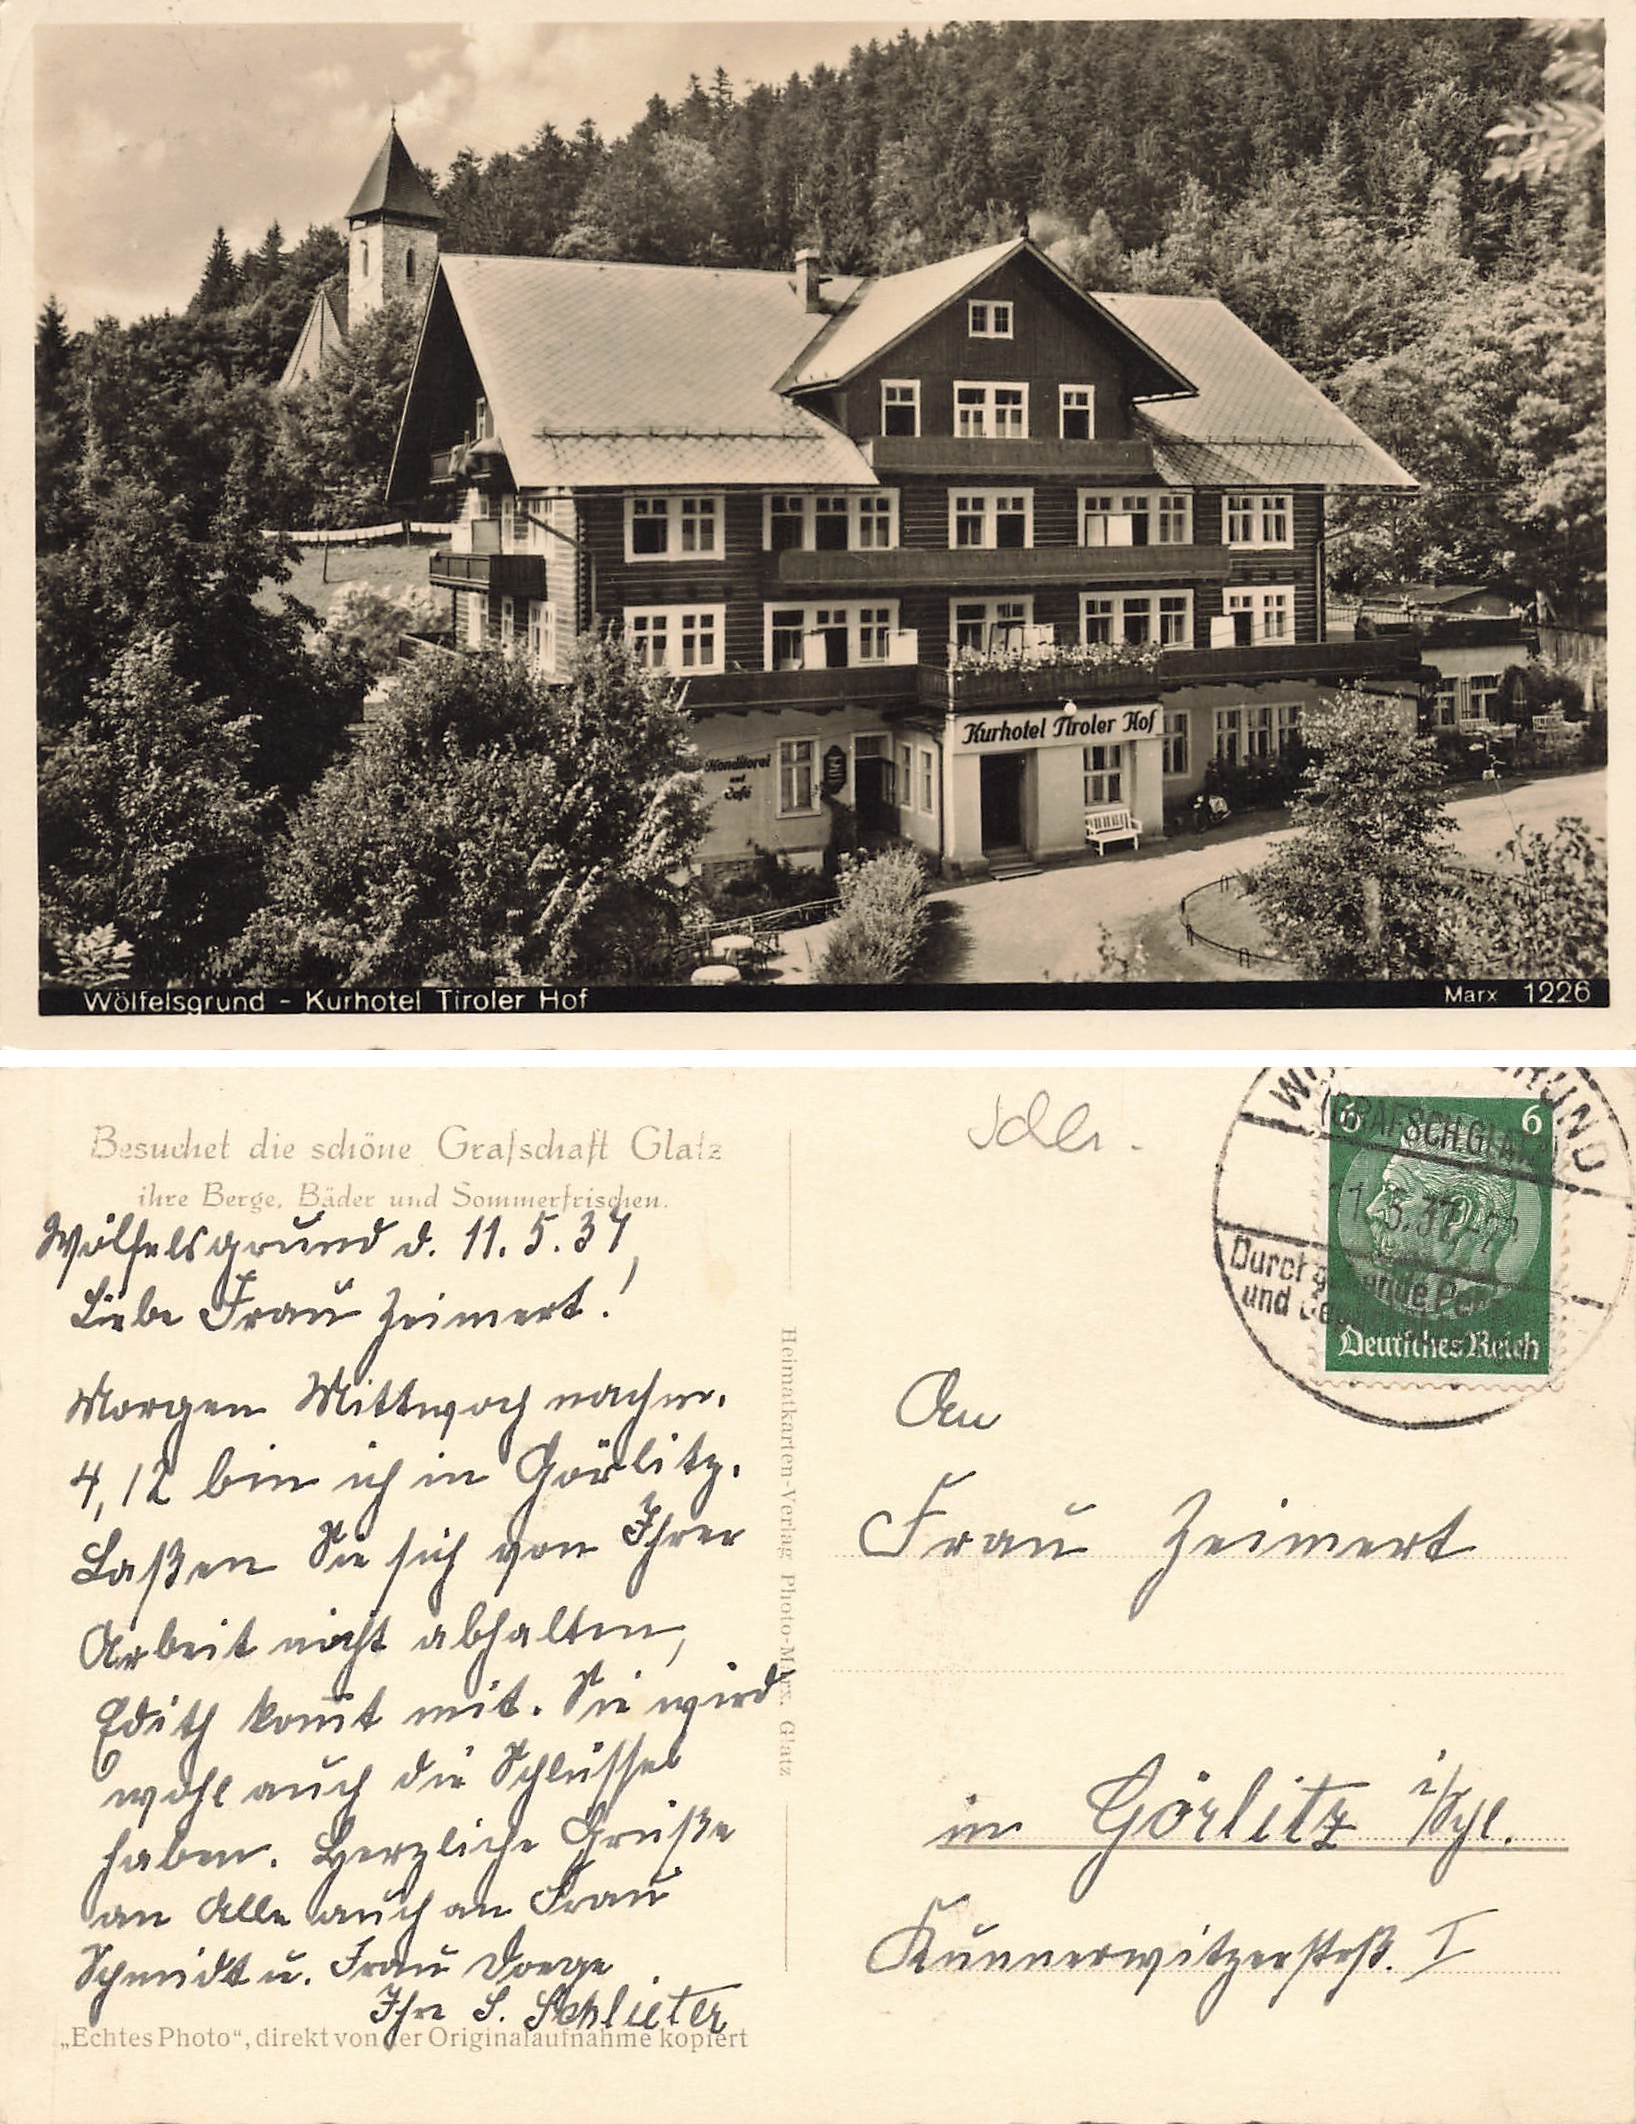 Konditorei
und
Café
Kurhotel Tiroler Hof
Wölfelsgrund - Kurhotel Tiroler Hof
Marx 1226
Besuchet die schöne Grafschaft Glatz
ihre Berge, Bäder und Sommerfrischen.
Wölfelsgrund d. 11. 5. 37,
Liebe Frau Zeimert!
Morgen Mittwoch nachm.
4,12 bin ich in Görlitz.
Laßen Sie sich von Ihrer
Arbeit nicht abhalten,
Edith kom̄t mit. Sie wird
wohl auch die Schlüssel
haben. Herzliche Grüße
an Alle auch an Frau
Schmidt u. Frau Doege
Ihre S. Schlieter
„Echtes Photo“, direkt von der Originalaufnahme kopiert
Heimatkarten-Verlag Photo-Marx, Glatz
6
Deutsches Reich
(GRAFSCH. GLATZ)
5.37
und
An
Frau Zeimert
in Görlitz i/Schl.
Kunnerwitzerstrß. I